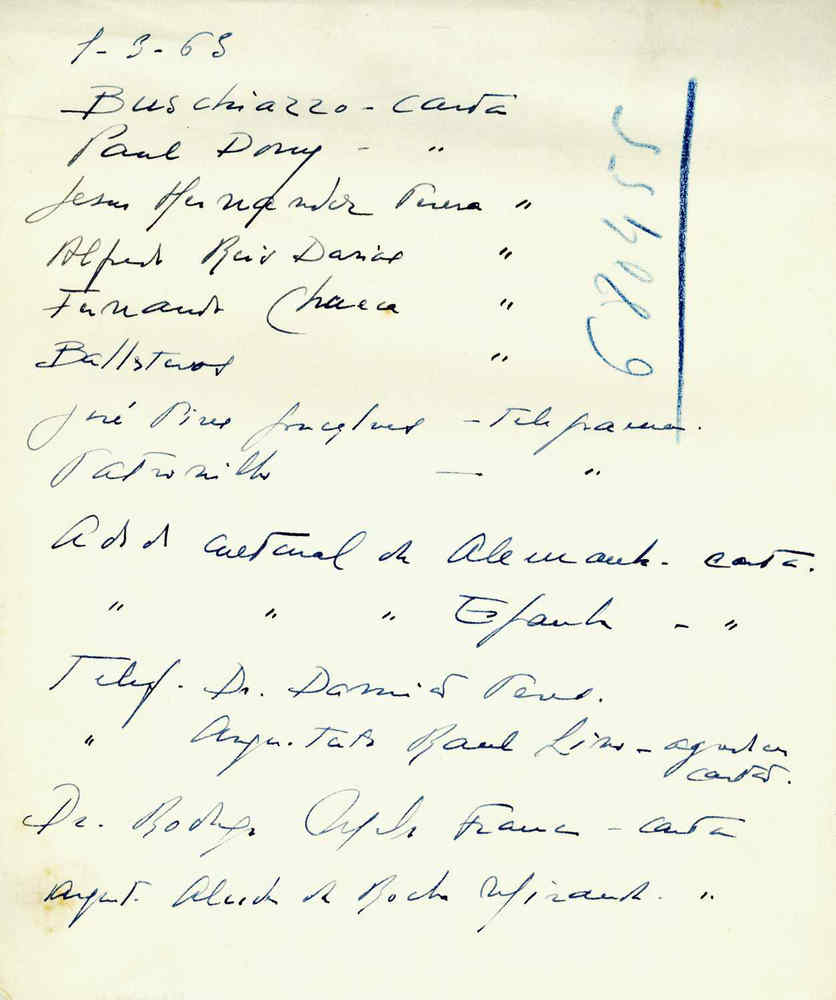 1-3-63
Buschiazzo - carta
Paul Dony - "
Jesus Hernandez Perera "
Alfredo Ruiz "
Fernando Chueca "
Ballesteros "
José Pires Gonçalves - telegrama.
Patrocinillo — "
Adido cultural da Alemanha - carta.
" " " Espanha - "
Telef. Dr. Damião Peres.
" Arquitecto Raul Lino - agradeceu
carta.
Dr. Rodrigo Franco - carta
Arquit. Alcides da Rocha Miranda. "
680455